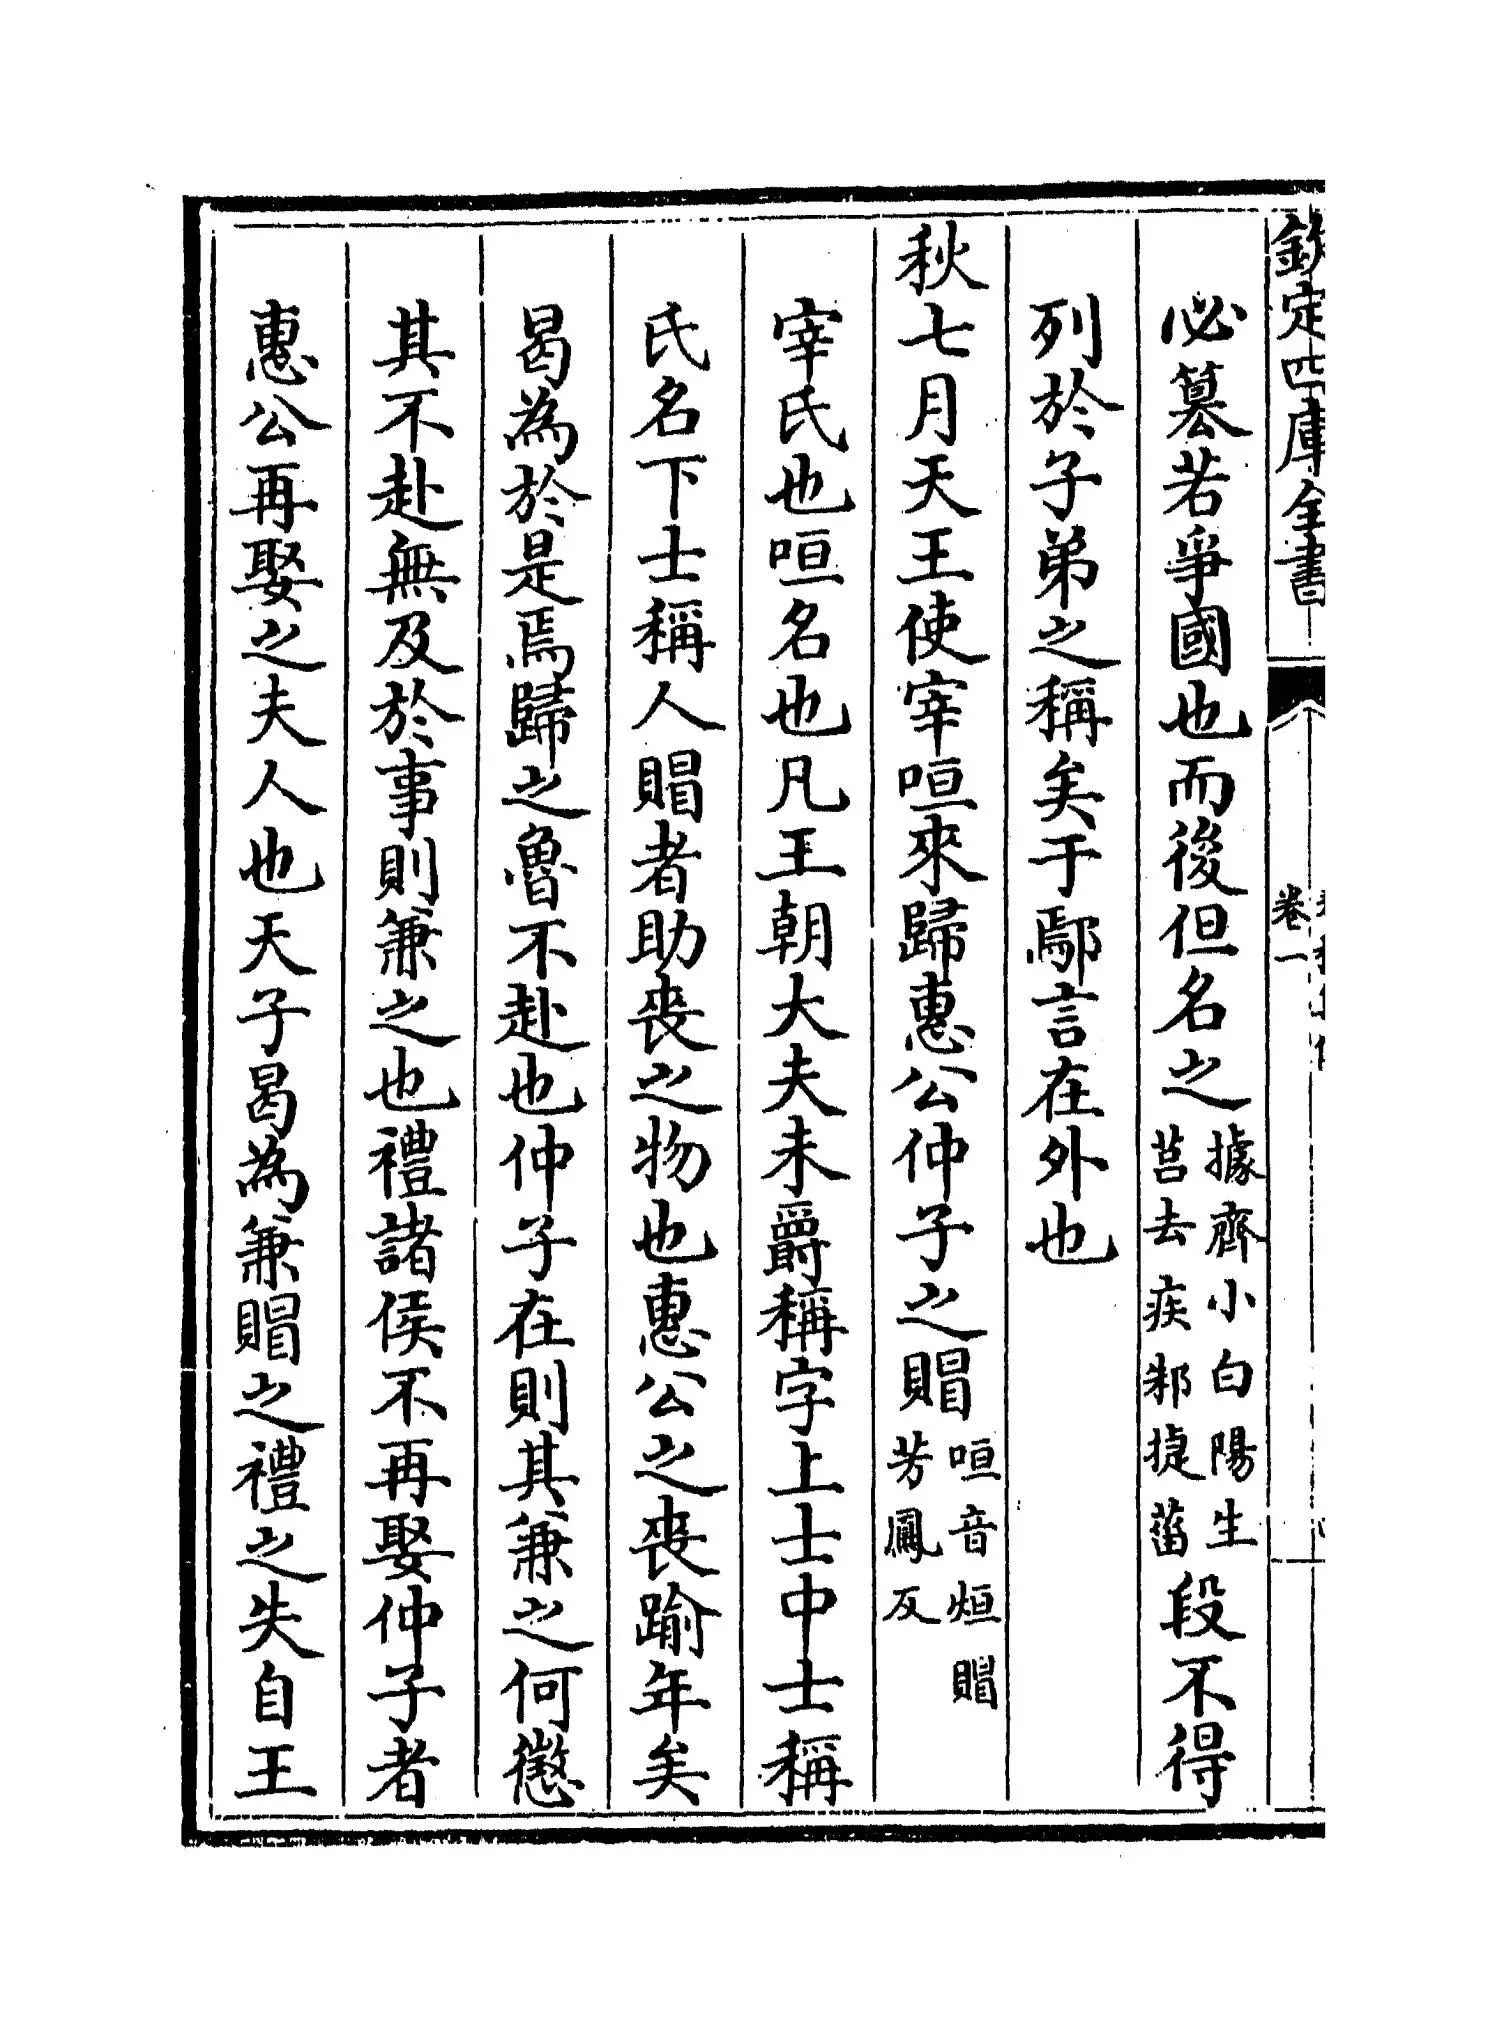 欽定四庫全書
卷一
必篡若爭國也而後但名之據齊小白陽生莒去疾邾捷菑段不得
列於子弟之稱矣于鄢言在外也
秋七月天王使宰咺來歸惠公仲子之賵咺音烜賵芳鳳反
宰氏也咺名也凡王朝大夫未爵稱字上士中士稱
氏名下士稱人賵者助喪之物也惠公之喪踰年矣
曷為於是焉歸之魯不赴也仲子在則其兼之何懲
其不赴無及於事則兼之也禮諸侯不再娶仲子者
惠公再娶之夫人也天子曷為兼賵之禮之失自王